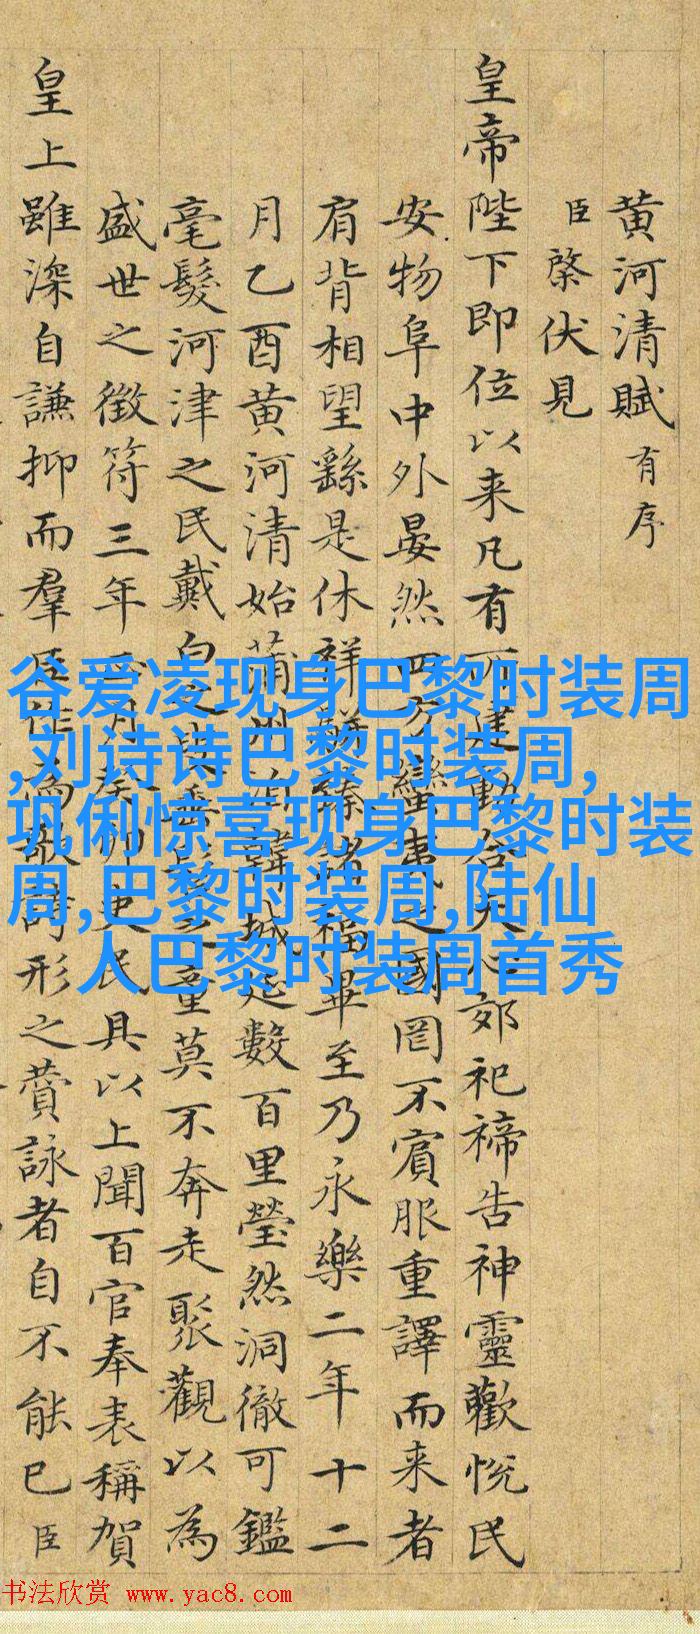 黄河清賦有序
臣棨伏見
皇帝陛下即位以来凡有所建動合天心郊祀禘告神靈歡悦民
安物阜中外晏然四方蠻夷之國罔不賓服重譯而来者
肩背相望繇是休祥駢臻諸福畢至乃永樂二年十二
月乙酉黄河清始蒲州向韓城延數百里瑩然洞徹可鑑
毫髮河津之民戴白之叟垂髫之童莫不奔走聚觀以為
盛世之徵符三年正月癸卯吏民具以上聞百官奉表稱賀
皇上雖深自謙抑而羣臣作為歌詩形之贊詠者自不能已臣
谷爱凌现身巴黎时装周
,刘诗诗巴黎时装周,
巩俐惊喜现身巴黎时装
周,巴黎时装周,陆仙
人巴黎时装周首秀
书法欣赏 www.yac8.com